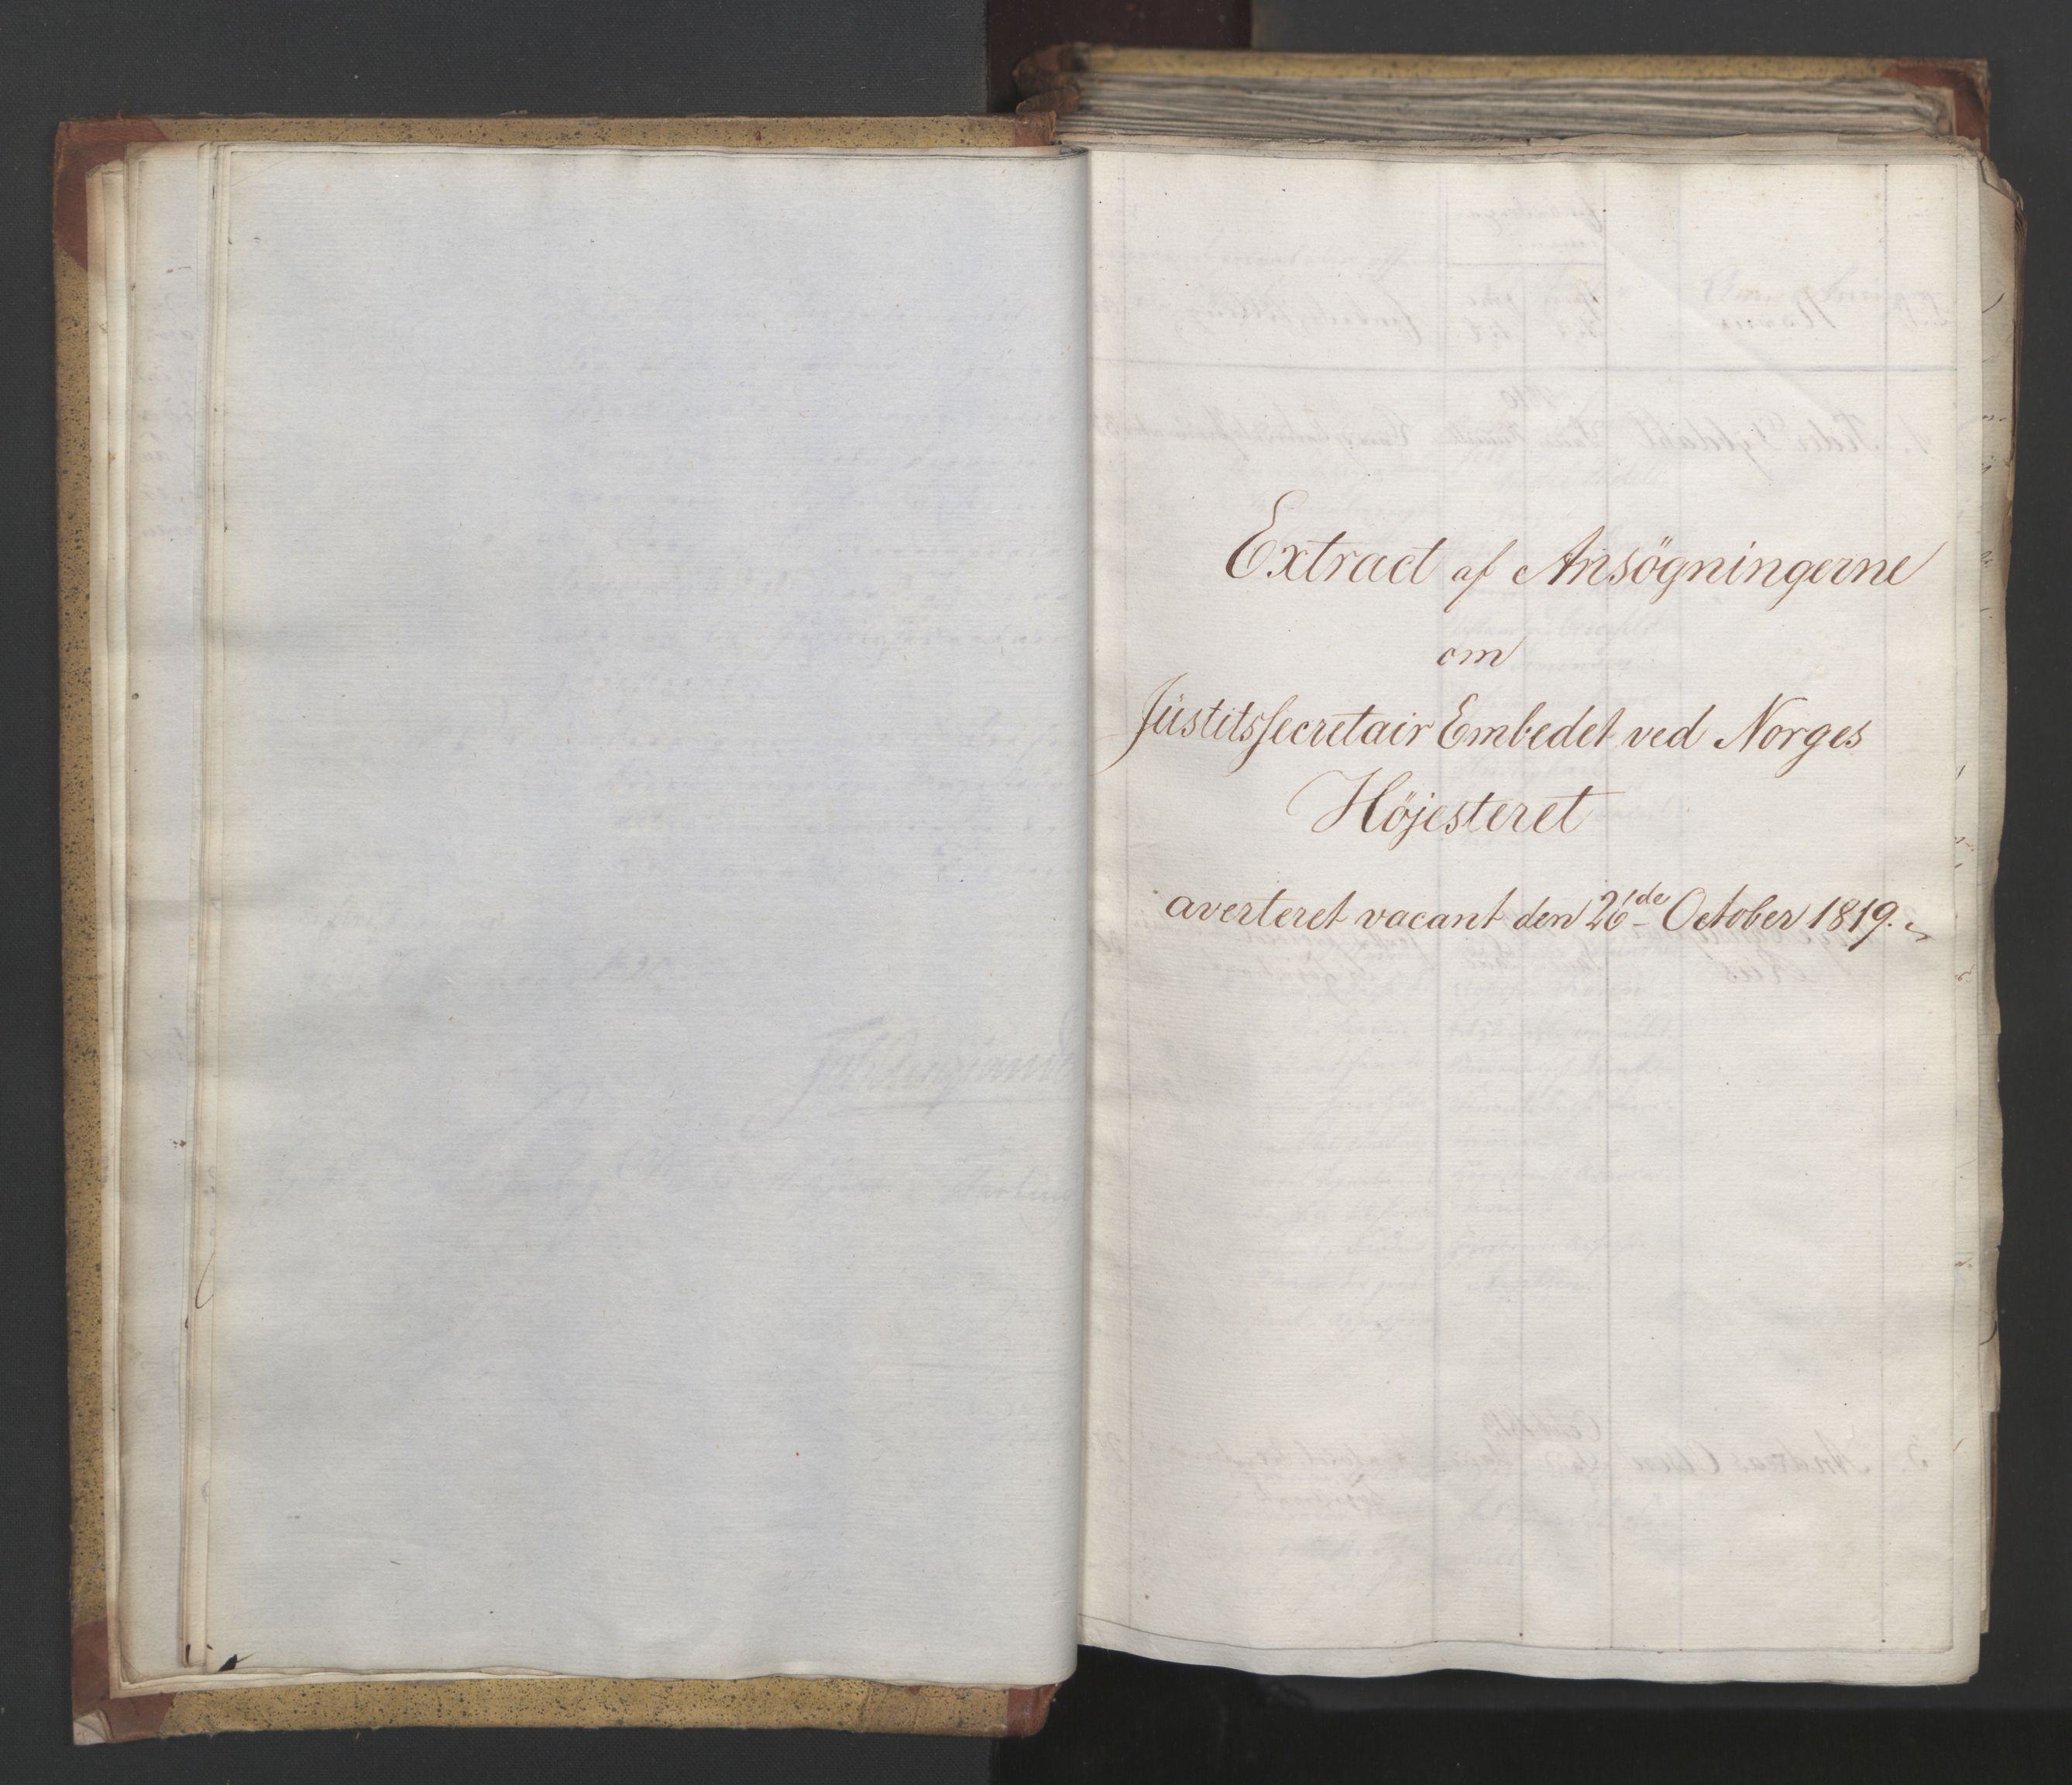 Extract af Ansögningerne
om
Justitssecretair Embedet ved Norges
Höjesteret
averteret vacant den 26de October 1819.